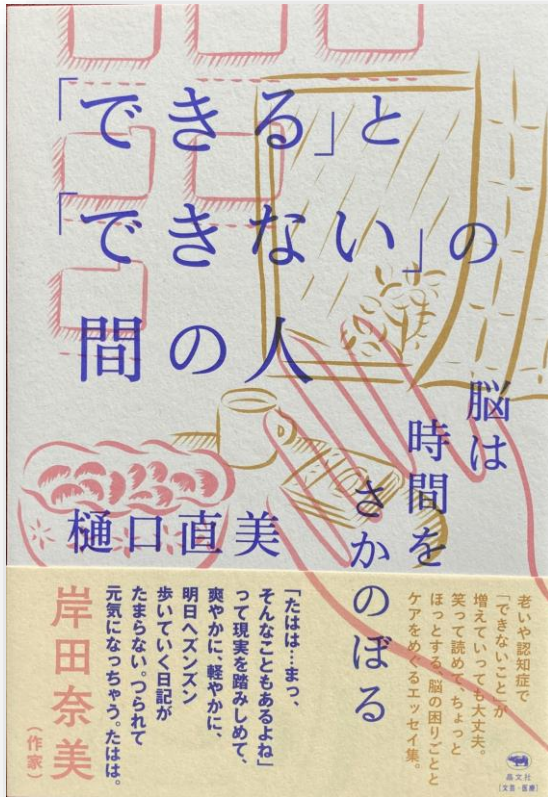 「できる」と
「できない」の
間の人
脳は
時間を
さかのぼる
樋口直美
老いや認知症で
「できないこと」が
増えていっても大丈夫。
笑って読めて、ちょっと
ほっとする、脳の困りごとと
ケアをめぐるエッセイ集。
「たはは…まっ、
そんなこともあるよね」
って現実を踏みしめて、
爽やかに、軽やかに、
明日へズンズン
歩いていく日記が
たまらない。つられて
元気になっちゃう。たはは。
岸田奈美
（作家）
晶文社
［文芸・医療］